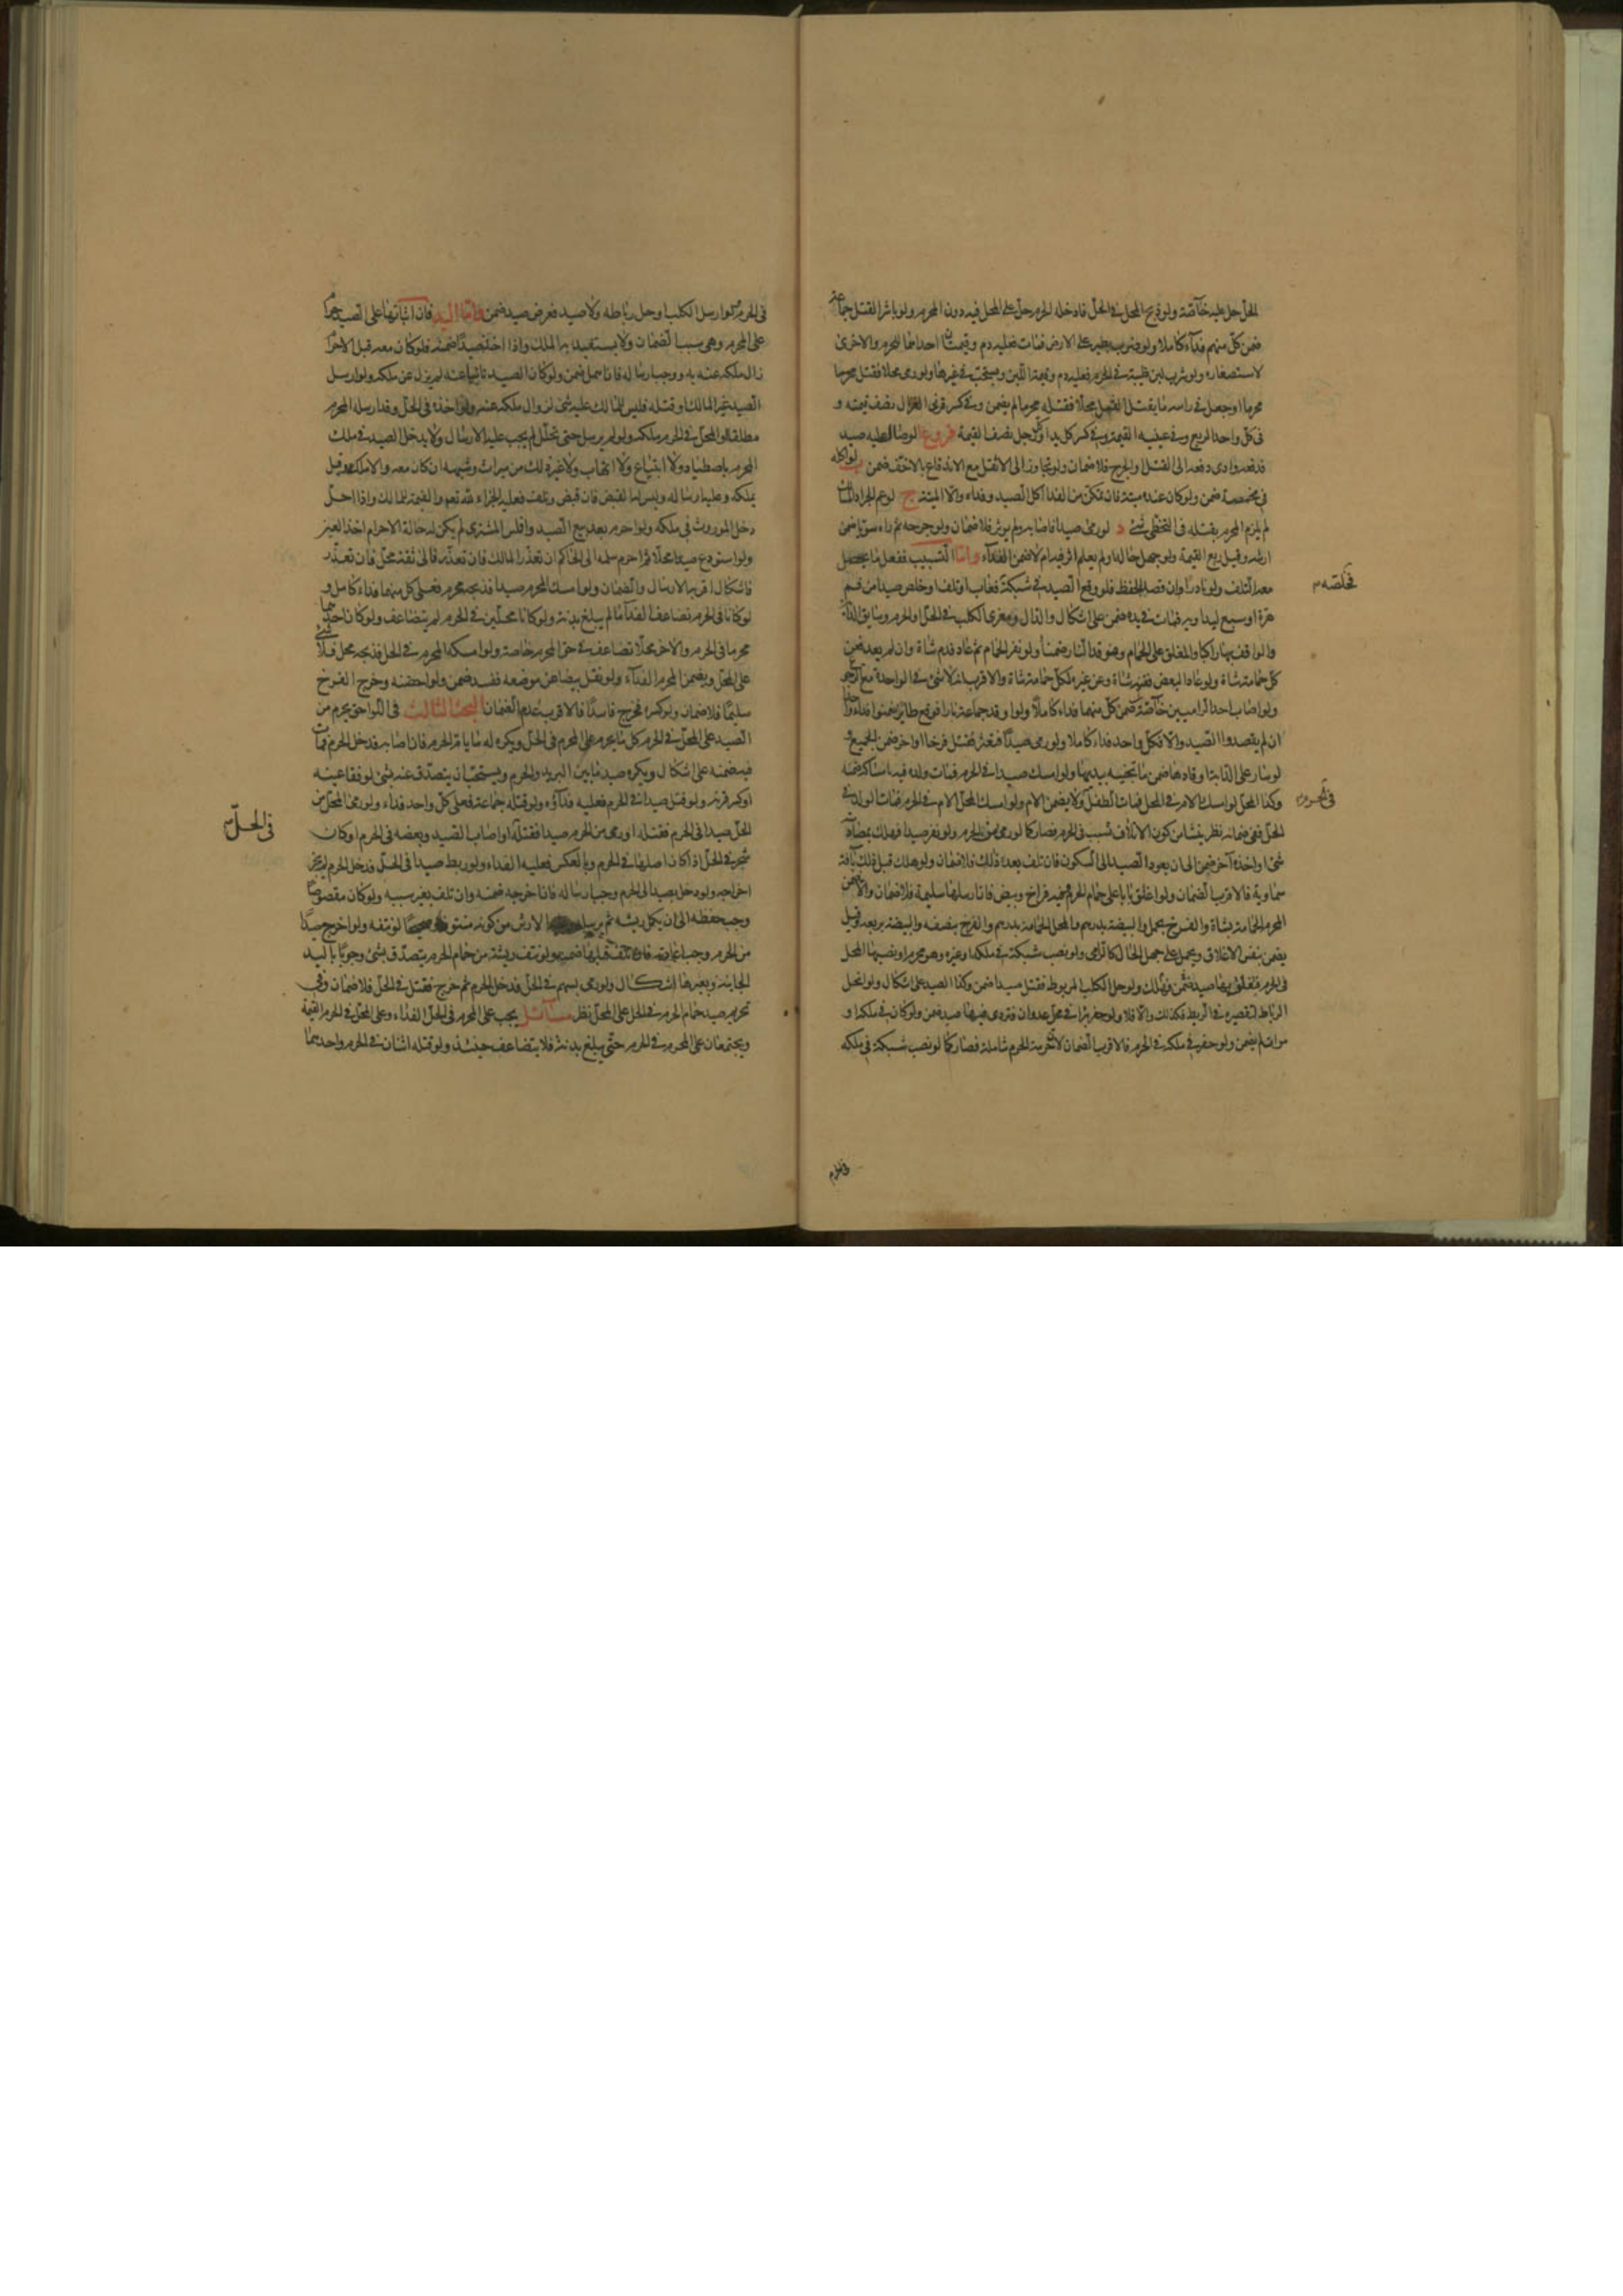 المحل حل عليه خاصّة ولو ذبح المحل في الحلّ فادخله الحرم حلّ على المحل فيه دون المحرم ولو باشر القتل جماعة
ضمن كلّ منهم فداءً كاملا ولو ضرب بطير على الارض فمات فعليه دم وقيمتان احداهما للحرم والاخرى
لاستصغاره ولو شرب لبن ظبية في الحرم فعليه دم وقيمة اللبن ولو رمى محلا فقتل محرما
محرما او جعل في راسه ما يقتل القمل محلا فقتله محرما لم يضمن وفي كسر قرني الغزال نصف قيمته و
في كلّ واحد الربع وفي عينيه القيمة وفي كسر كل يد او رجل نصف القيمة فروع الوصال عليه صيد
فدفعه وادى دفعه الى القتل او الجرح فلا ضمان ولو تجاوز الى الاثقل مع الاندفاع بالاخف ضمن ب لو اكله
في مخمصة ضمن ولو كان عنده ميتة فان تمكن من الفداء اكل الصيد وفداه والّا الميتة ج لو عم الجراد المسالك
لم يلزم المحرم بقتله في التخطى شئ د لو رمى صيدا فاصابه ولم يوثر فلا ضمان ولو جرحه ثم رآه سويا ضمن
ارشه وقيل ربع القيمة ولو جهل حاله او لم يعلم اثر فيه ام لا ضمن الفداء وامّا التسبيب ففعل ما يحصل
معه التلف ولو نادرا وان قصد الحفظ فلو وقع الصيد في شبكة فعاب او تلف او خلص صيدا من فم
فخلصه
هرة او سبع ليداويه فمات في يده ضمن على اشكال والدال ومغرى الكلب في الحلّ او الحرم وسايق الدابة
والواقف بها راكبا والمغلق على الحمام وموقد النار ضمنا ولو نفر حمام الحرم ثم عاد فدم شاة وان لم يعد فعن
كل حمامة شاة ولو عاد البعض ففيه شاة وعن غيره لكل حمامة شاة والاقرب انه لا شئ في الواحدة مع الرجوع
ولو اصاب احد الراميين خاصّة ضمن كلّ منهما فداء كاملا ولو اوقد جماعة نارا فوقع طائر ضمنوا فداء واحدا
ان لم يقصدوا الصيد والّا فكلّ واحد فداء كاملا ولو رمى صيدا فتعثر فقتل فرخا او اخر ضمن الجميع و
لو سار على الدابة او قادها ضمن ما تجنيه بيديها ولو امسك صيدا في الحرم فمات ولده فيه باساكه ضمنه
وكذا المحل لو امسك الام في المحل فمات الطفل ولا يضمن الام ولو امسك المحل الام في الحرم فمات الولد في
في الحرم
الحلّ ففي ضمانه نظر ينشا من كون الاتلاف بسبب في الحرم فصار كما لو رمى من الحرم ولو نفر صيدا فهلك بمصادمة
شئ او اخذه آخر ضمن الى ان يعود الصيد الى السكون فان تلف بعد ذلك فلا ضمان ولو هلك قبل ذلك بآفة
سماوية فالاقرب الضمان ولو اغلق بابا على حمام الحرم وفيه فراخ وبيض فان ارسلها سليمة فلا ضمان والّا ضمن
المحرم الحمامة بشاة والفرخ بحمل والبيضة بدرهم والمحل الحمامة بدرهم والفرخ بنصفه والبيضة بربعه وقيل
يضمن بنفس الاغلاق ويحمل على جهل الحال كالرامى ولو نصب شبكة في ملكه او غيره وهو محرم او نصبها المحل
في الحرم فتعلق بها صيد فهلك ضمن ولو حل الكلب المربوط فقتل صيدا ضمن وكذا الصيد على اشكال ولو انحل
الرباط لتقصيره في الربط فكذلك والّا فلا ولو حفر بئرا في محل عدوان فتردى فيها صيد ضمن ولو كان في ملكه او
موات لم يضمن ولو حفر في ملكه في الحرم فالاقرب الضمان لان حرمة الحرم شاملة فصار كما لو نصب شبكة في ملكه
في الحرم
في الحرم ولو ارسل الكلب او حل رباطه ولا صيد فعرض صيد ضمن وامّا اليد فان اثباتها على الصيد حرام
على المحرم وهي سبب الضمان ولا يستفيد به الملك واذا اخذ صيدا ضمنه فلو كان معه قبل الاحرام
زال ملكه عنه به ووجب ارساله فان اهمل ضمن ولو كان الصيد نائيا عنه لم يزل عن ملكه ولو ارسل
الصيد غير المالك او قتله فليس للمالك عليه شئ لزوال ملكه عنه ولو اخذه في الحلّ وقد ارسله المحرم
مطلقا او المحل في الحرم ملكه ولو لم يرسل حتى تحلّل لم يجب عليه الارسال ولا يدخل الصيد في ملك
المحرم باصطياد ولا ابتياع ولا اتهاب ولا غير ذلك من ميراث وشبهه ان كان معه والا ملك وقيل
يملكه وعليه ارساله وليس له القبض فان قبض وتلف فعليه الجزاء لله تعالى والقيمة للمالك واذا احلّ
دخل الموروث في ملكه ولو احرم بعد بيع الصيد وافلس المشترى لم يكن له حالة الاحرام اخذ العين
ولو استودع صيدا محلا ثم احرم سلمه الى الحاكم ان تعذر المالك فان تعذر فالى ثقة محل فان تعذر
فاشكال اقربه الارسال والضمان ولو امسك المحرم صيدا فذبحه محرم فعلى كل منهما فداء كامل و
لو كانا في الحرم تضاعف الفداء ما لم يبلغ بدنة ولو كانا محلّين في الحرم لم يتضاعف ولو كان احدهما
محرما في الحرم والآخر محلا تضاعف في حق المحرم خاصة ولو امسكه المحرم في الحل فذبحه محل فلا شئ
على المحل ويضمن المحرم الفداء ولو نقل بيضا عن موضعه ففسد ضمن ولو احضنه وخرج الفرخ
سليما فلا ضمان ولو كسره فخرج فاسدا فالاقرب عدم الضمان البحث الثالث في اللواحق يحرم من
الصيد على المحل في الحرم كل ما يحرم على المحرم في الحل ويكره له ما يام الحرم فان اصابه فدخل الحرم فمات
فيضمنه على اشكال ويكره صيد ما بين البريد والحرم ويستحب ان يتصدق عنه بشئ لو فقأ عينه
او كسر قرنه ولو قتل صيدا في الحرم فعليه فداؤه ولو قتله جماعة فعلى كل واحد فداء ولو رمى المحل من
الحل صيدا في الحرم فقتله او رمى من الحرم صيدا فقتله او اصاب الصيد وبعضه في الحرم او كان
في الحلّ
شجره في الحلّ اذا كان اصلها في الحرم وبالعكس فعليه الفداء ولو ربط صيدا في الحلّ فدخل الحرم لم يجز
اخراجه ولو دخل بصيد الى الحرم وجب ارساله فان اخرجه ضمنه وان تلف بغير سببه ولو كان مقصوصا
وجب حفظه الى ان يكمل ريشه ثم يرسله الارش من كونه منتوفا لو نتفه ولو اخرج صيدا
من الحرم وجب اعادته فان تلف قبلها ضمنه ولو نتف ريشة من حمام الحرم يتصدق بشئ وجوبا باليد
الجانية وبغيرها اشكال ولو رمى بسهم في الحل فدخل الحرم ثم خرج فقتل في الحل فلا ضمان وفي
تحريم صيد حمام الحرم في الحل على المحل نظر مسائل يجب على المحرم في الحل الفداء وعلى المحل في الحرم القيمة
ويجتمعان على المحرم في الحرم حتى يبلغ بدنة فلا يتضاعف حينئذ ولو قتله اثنان في الحرم واحدهما